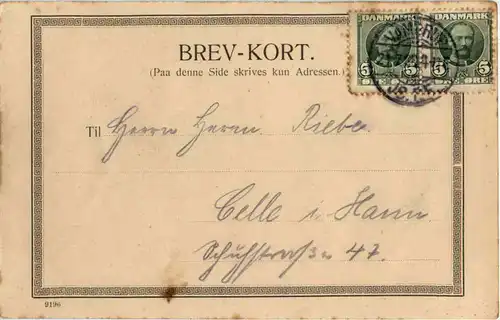 DANMARK DANMARK
5 5 5 5
ØRE ØRE
BREV-KORT.
(Paa denne Side skrives kun Adressen.)
Til Herrn Herm. Riebe.
Celle i. Hann.
Schuhstraße 47.
9196